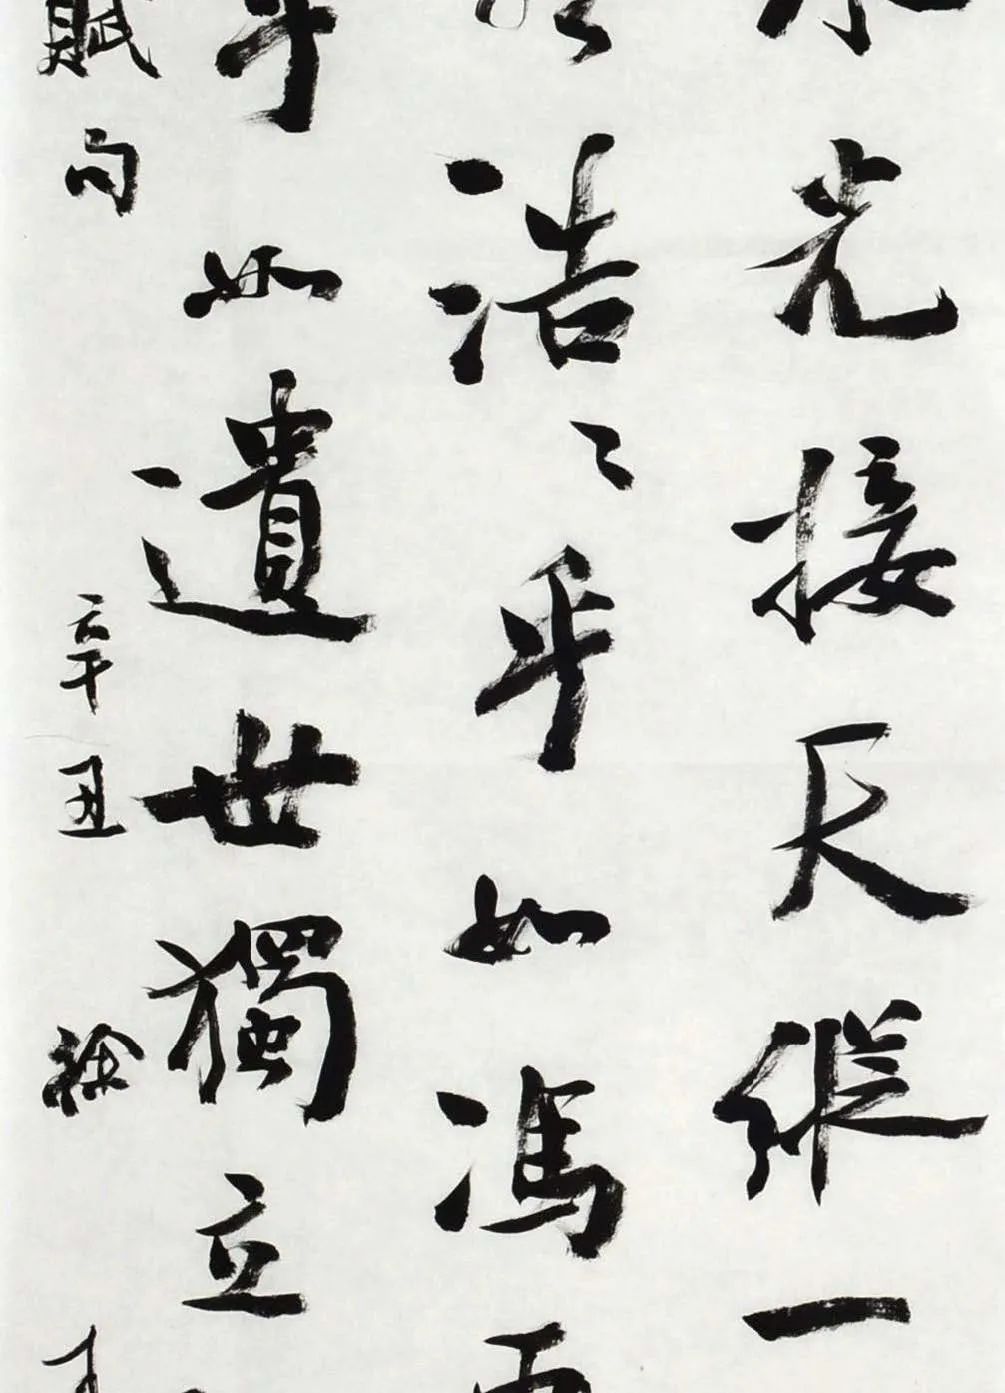 水光接天縱一
浩〻乎如馮
乎如遺世獨立
賦句辛丑徐